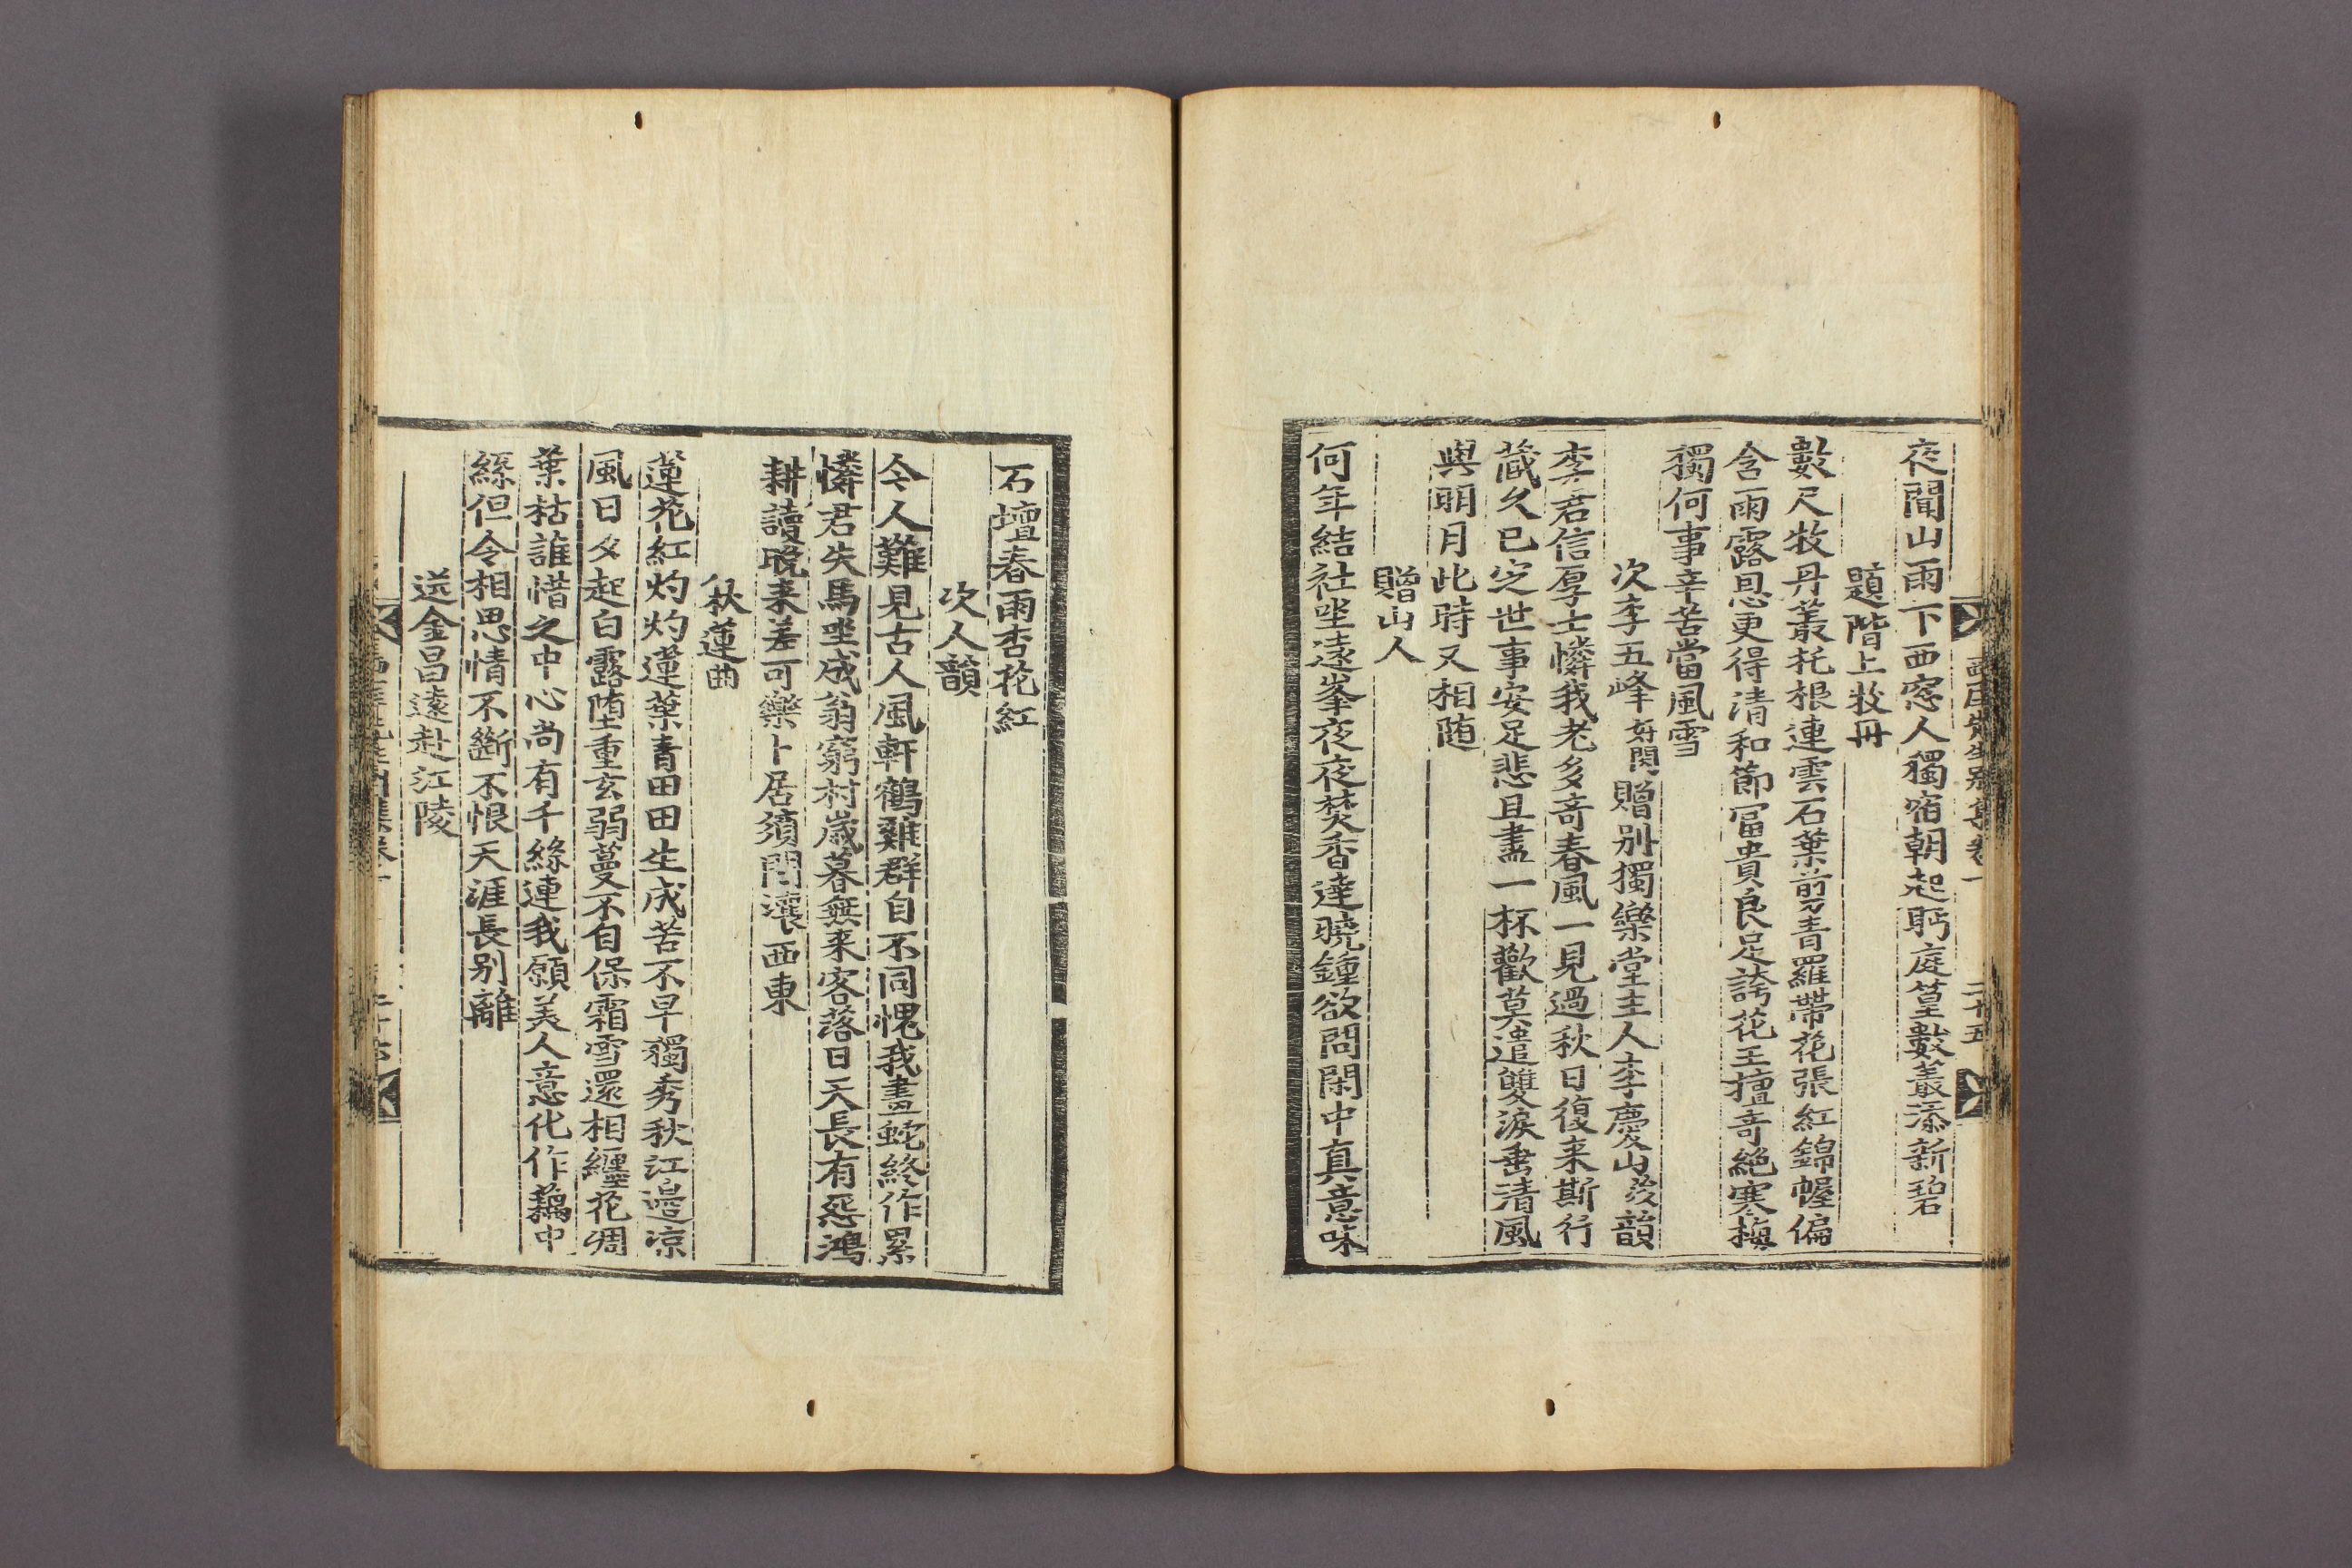 夜間山雨下西窓人獨宿朝起眄庭篁數叢添新碧
題階上牧丹
數尺牧丹叢托根連雲石葉剪青羅帶花張紅錦幄偏
含雨露恩更得清和節富貴良足誇花王擅奇絶寒梅
獨何事辛苦當風雪
次李五峰好閔贈别獨樂堂主人李慶山韻
李君信厚士憐我老多奇春風一見過秋日復来斯行
蔵久已㝎世事安足悲且盡一杯歡莫遣雙淚垂清風
與明月此時又相随
贈山人
何年結社坐遠峯夜夜焚香達曉鍾欲問閑中真意味
二十五
石壇春雨杏花紅
次人韻
今人難見古人風軒鶴雞群自不同愧我畫蛇終作累
憐君失馬坐成翁窮村歲暮無来客落日天長有怨鴻
耕讀晩来差可樂卜居須問瀼西東
秋蓮曲
蓮花紅灼灼蓮葉青田田生成苦不早獨秀秋江邉凉
風日夕起白露堕重玄弱蔓不自保霜雪還相纒花凋
葉枯誰惜之中心尚有千絲連我願美人意化作藕中
絲但令相思情不斷不恨天涯長别離
送金昌遠赴江陵